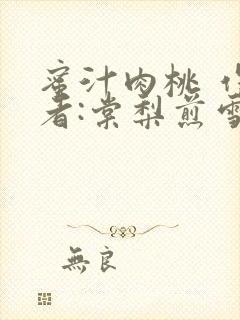 蜜汁肉桃
者:棠梨煎雪
無良